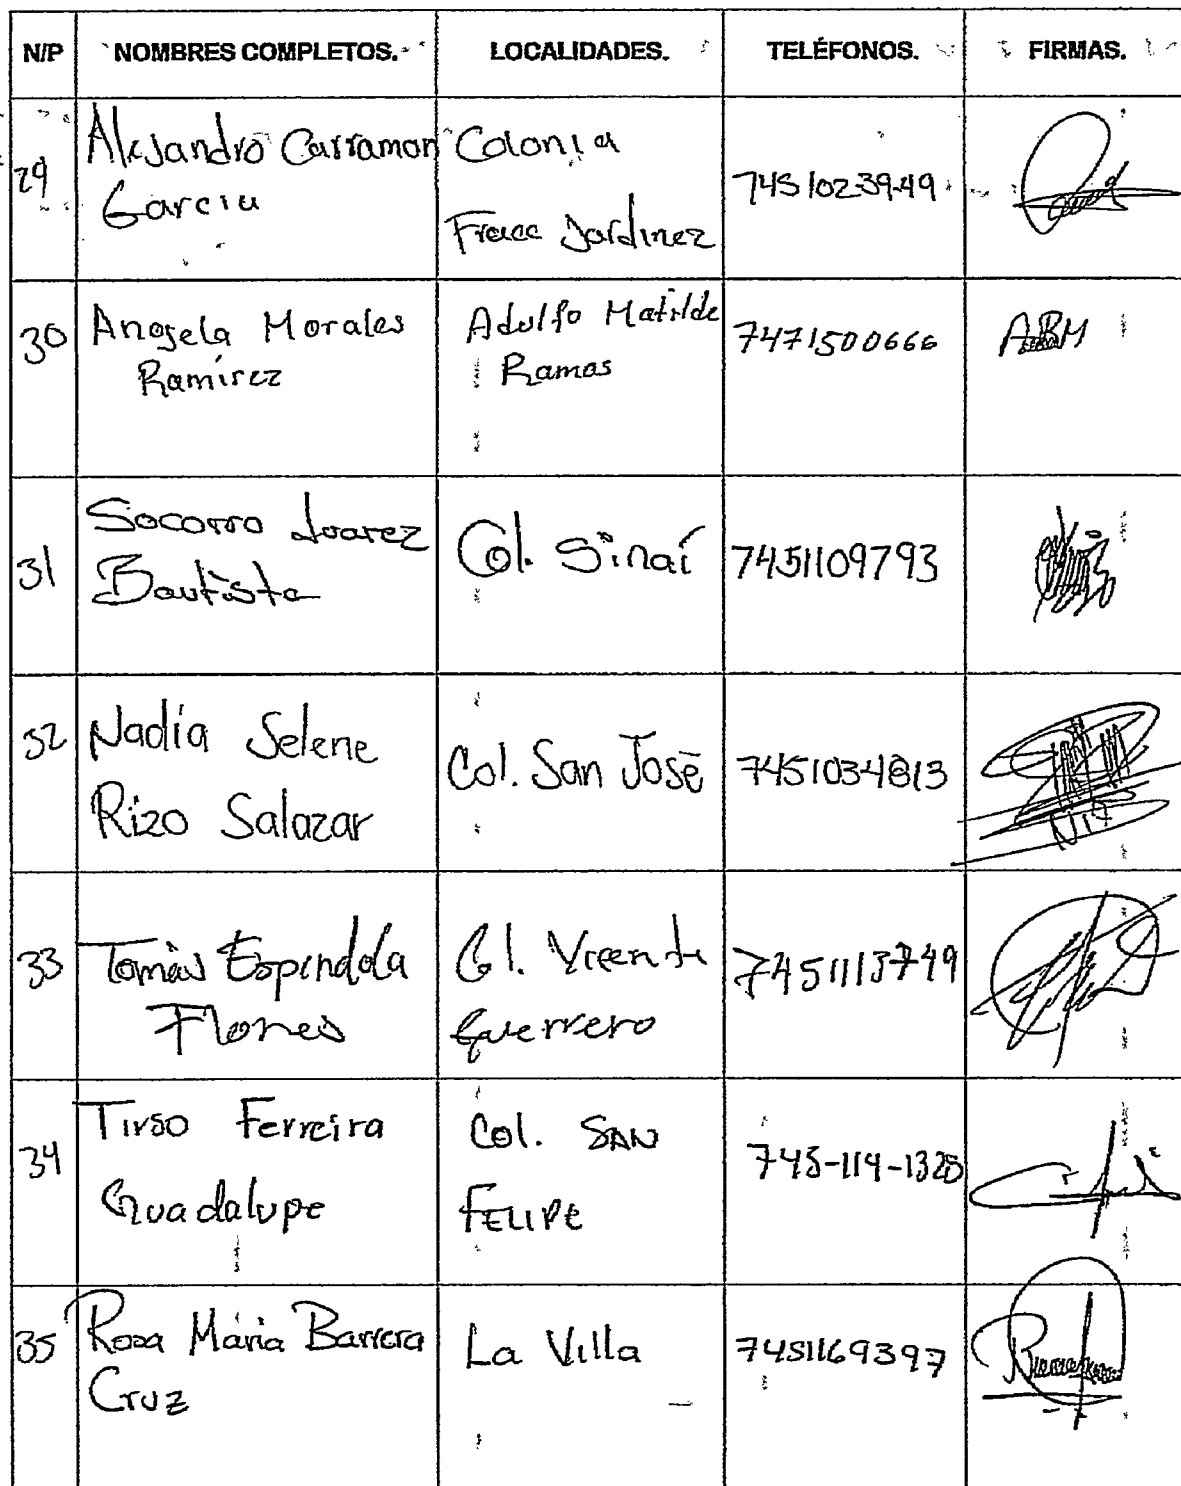 N/P NOMBRES COMPLETOS. LOCALIDADES. TELÉFONOS. FIRMAS.
29 Alejandro Carramon Garcia Colonia Fracc Jardinez 7451023949
30 Angela Morales Ramírez Adolfo Matilde Ramos 7471500666 ABM
31 Socorro Juarez Bautista Col. Sinaí 7451109793
32 Nadia Selene Rizo Salazar Col. San José 7451034813
33 Tomàs Espindola Flores Col. Vicente Guerrero 7451113749
34 Tirso Ferreira Guadalupe Col. SAN FELIPE 745-114-1325
35 Rosa Maria Barrera Cruz La Villa 7451169397